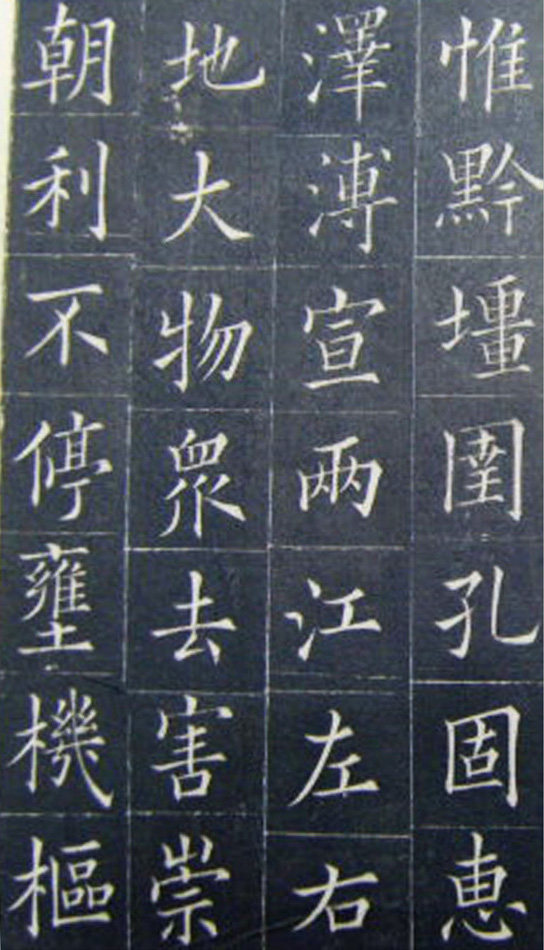 惟黔壃圉孔固惠
澤溥宣兩江左右
地大物眾去害崇
朝利不停壅機樞